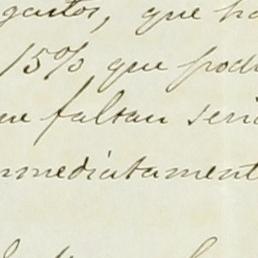 gastos, que ha
15% que podr
que faltan seri
inmediatament